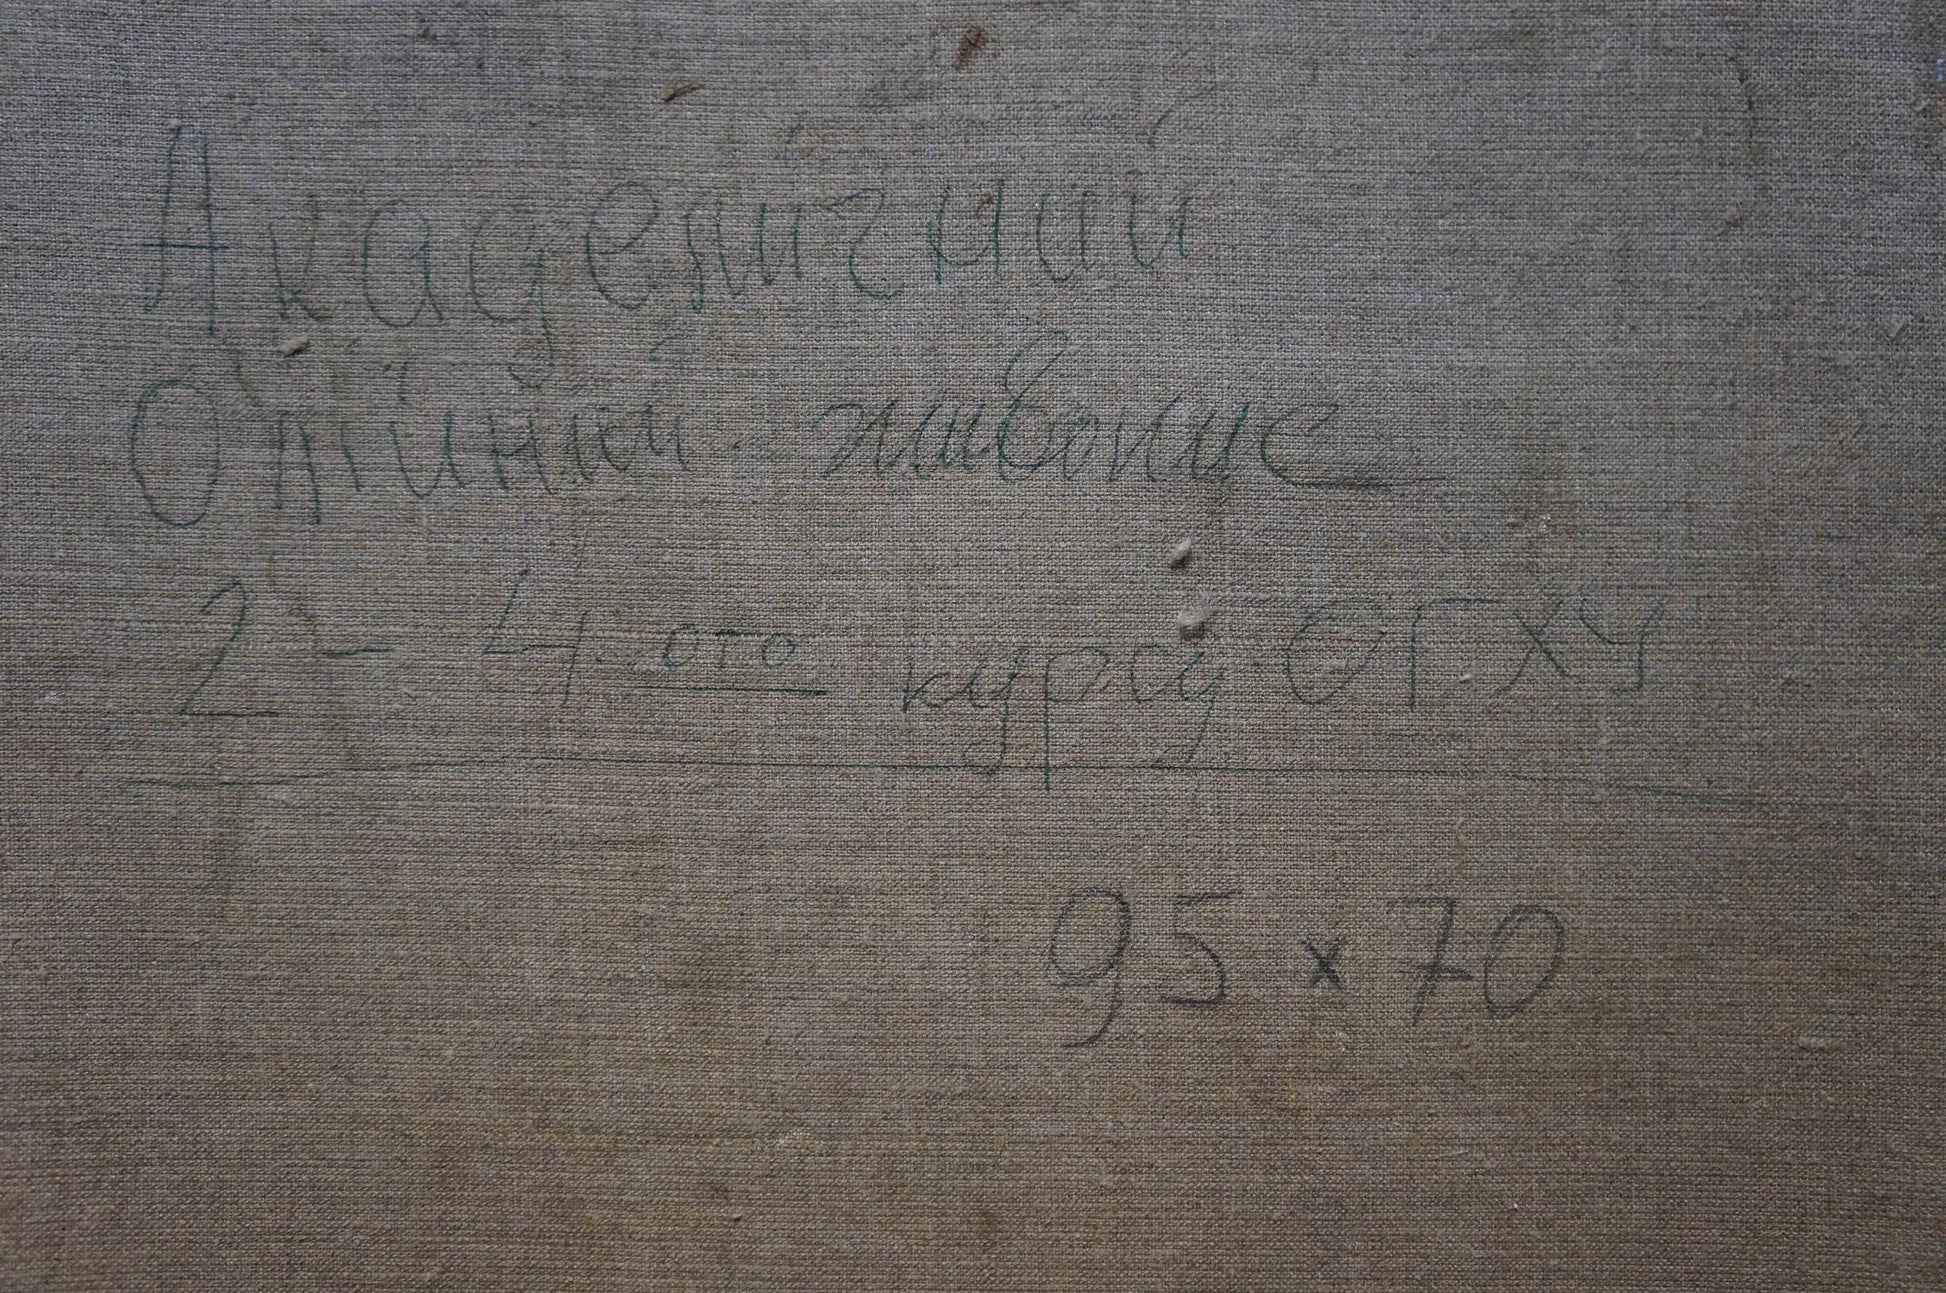 Академічний
Олійний живопис
2 - 4 ого курсу ОГХУ
95 х 70